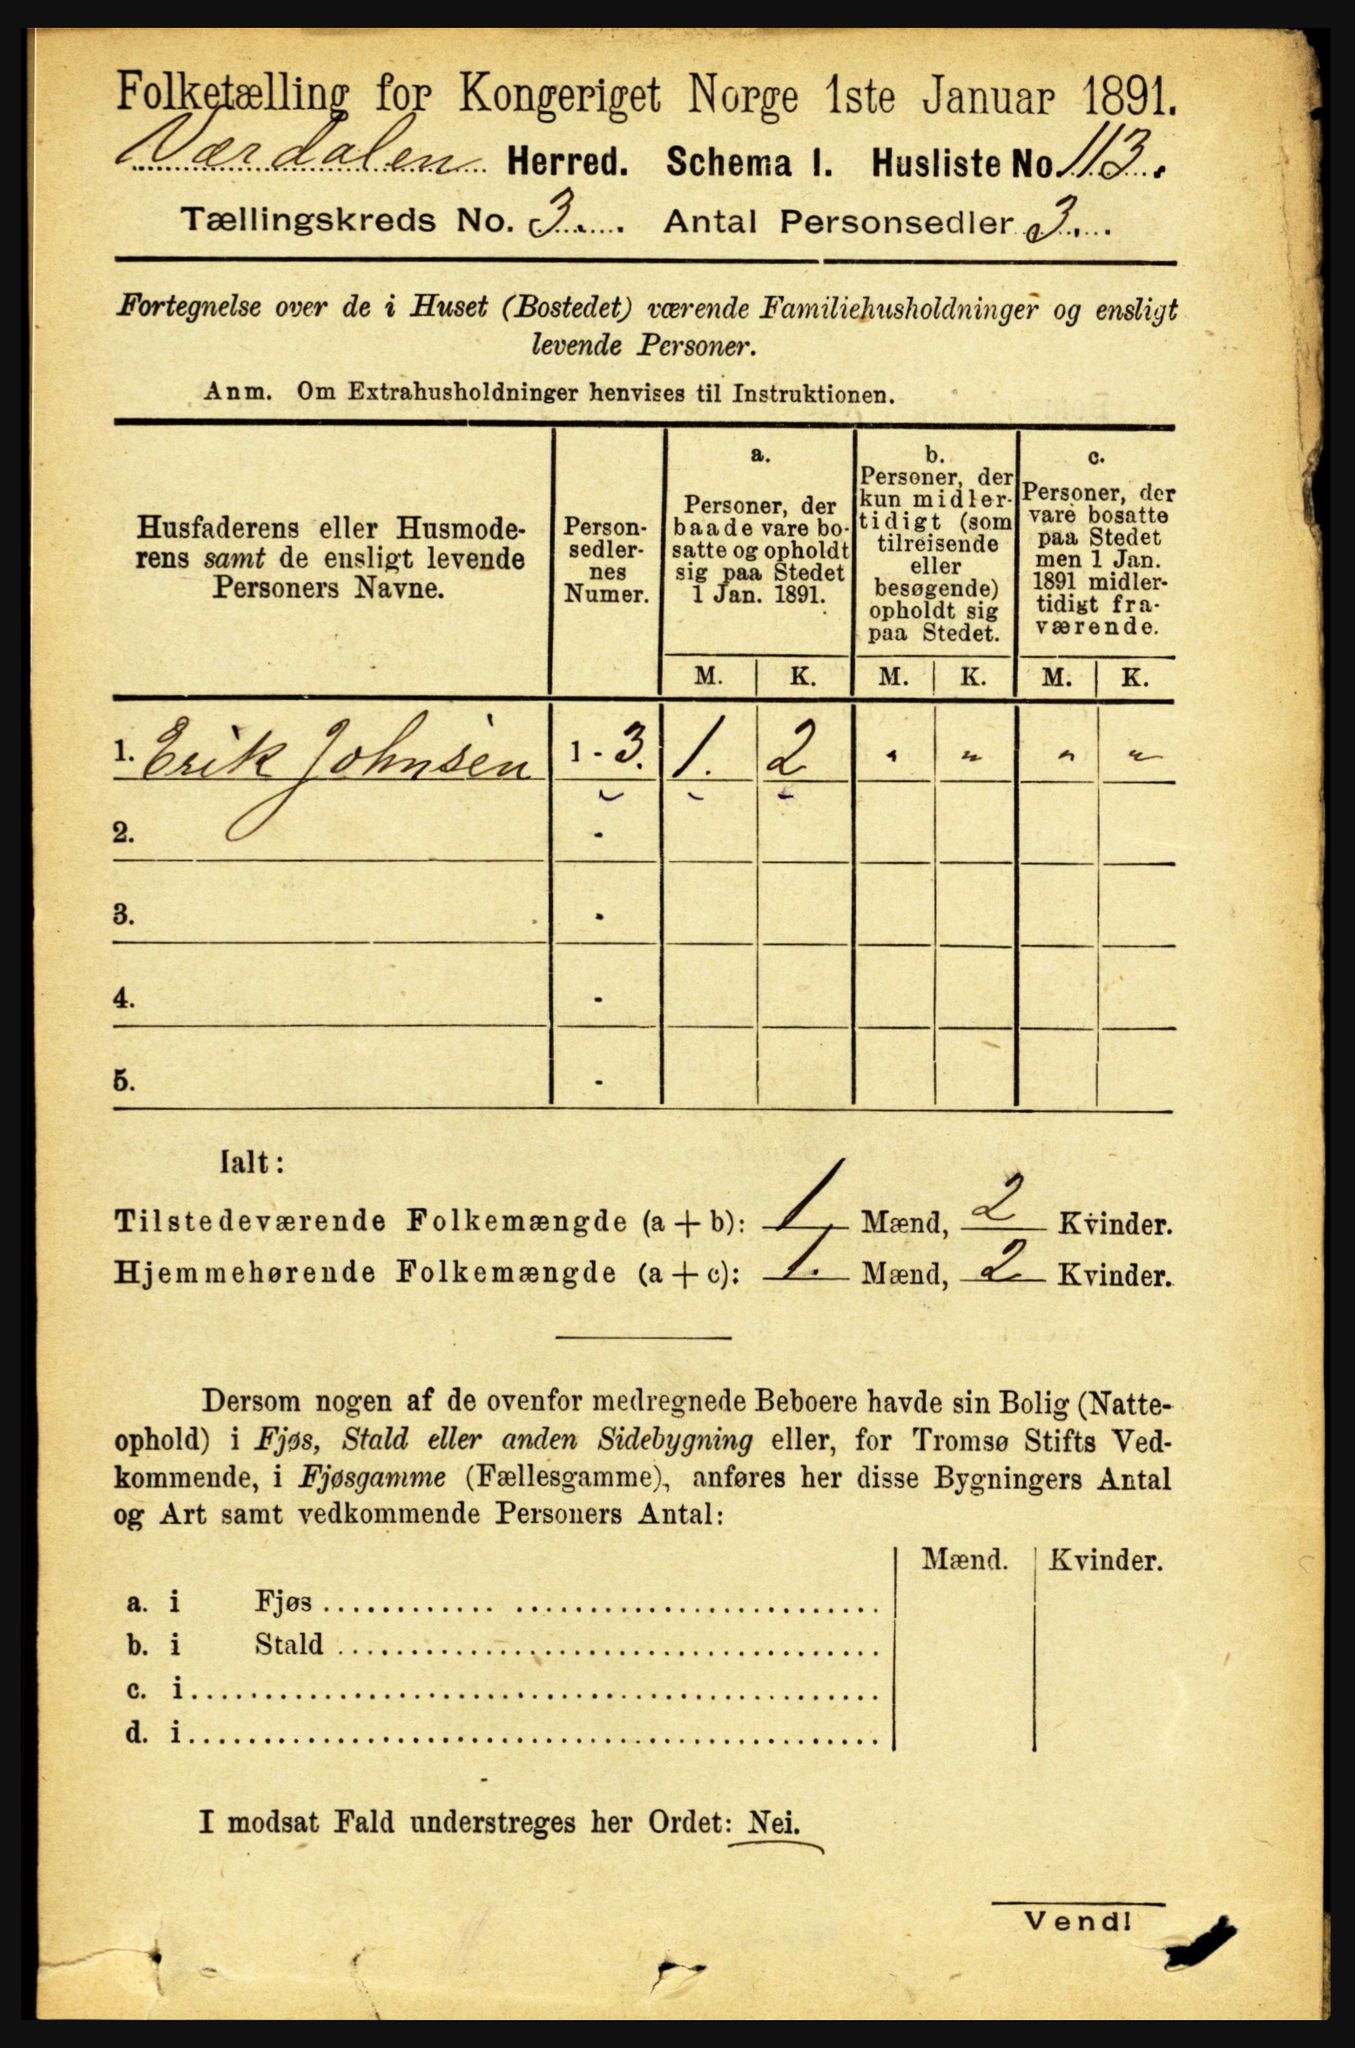 Folketælling for Kongeriget Norge 1ste Januar 1891.
Værdalen Herred. Schema I. Husliste No 113.
Tællingskreds No. 3. Antal Personsedler 3.
Fortegnelse over de i Huset (Bostedet) værende Familiehusholdninger og ensligt
levende Personer.
Anm. Om Extrahusholdninger henvises til Instruktionen.
Husfaderens eller Husmode-
rens samt de ensligt levende
Personers Navne.
Person-
sedler-
nes
Numer.
a.
Personer, der
baade vare bo-
satte og opholdt
sig paa Stedet
1 Jan. 1891.
b.
Personer, der
kun midler-
tidigt (som
tilreisende
eller
besøgende)
opholdt sig
paa Stedet.
c.
Personer, der
vare bosatte
paa Stedet
men 1 Jan.
1891 midler-
tidigt fra-
værende.
M. K. M. K. M. K.
1. Erik Johnsen 1 - 3. 1. 2 " " " "
2. -
3. -
4. -
5. -
Ialt:
Tilstedeværende Folkemængde (a + b): 1. Mænd, 2 Kvinder.
Hjemmehørende Folkemængde (a + c): 1. Mænd, 2 Kvinder.
Dersom nogen af de ovenfor medregnede Beboere havde sin Bolig (Natte-
ophold) i Fjøs, Stald eller anden Sidebygning eller, for Tromsø Stifts Ved-
kommende, i Fjøsgamme (Fællesgamme), anføres her disse Bygningers Antal
og Art samt vedkommende Personers Antal:
Mænd. Kvinder.
a. i Fjøs
b. i Stald
c. i
d. i
I modsat Fald understreges her Ordet: Nei.
Vend!